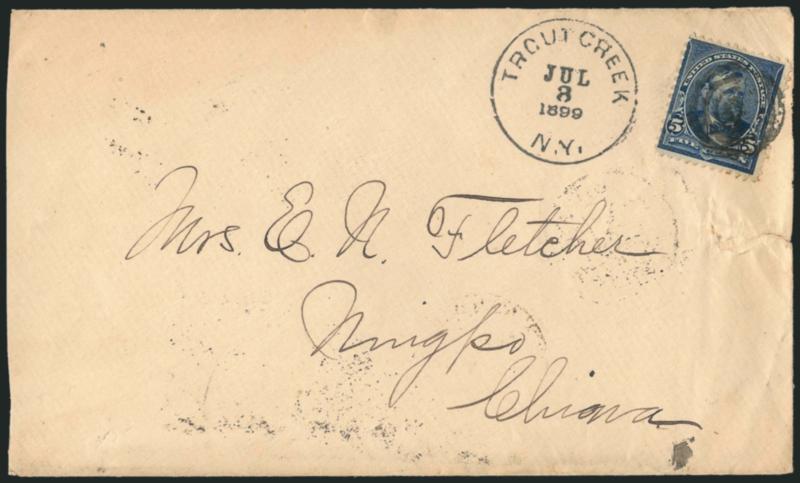 TROUT CREEK
JUL
8
1899
N.Y.
UNITED STATES POSTAGE
5 5
Mrs. E. N. Fletcher
Ningpo
China